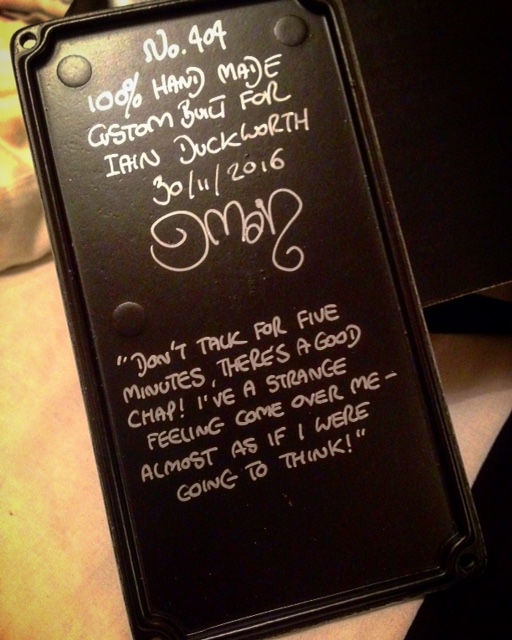 No. 404
100% HAND MADE
CUSTOM BUILT FOR
IAIN DUCKWORTH
30/11/2016
"DON'T TALK FOR FIVE
MINUTES, THERE'S A GOOD
CHAP! I'VE A STRANGE
FEELING COME OVER ME-
ALMOST AS IF I WERE
GOING TO THINK!"